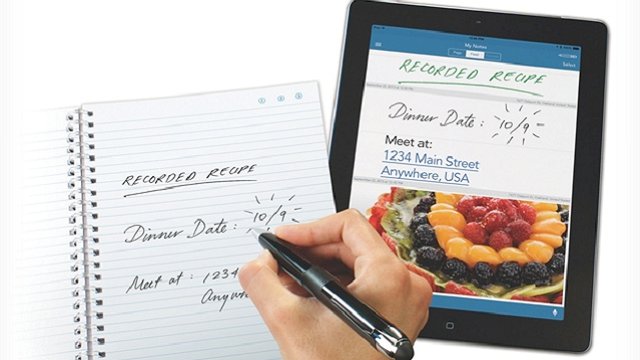 RECORDED RECIPE
Dinner Date : 10/9
Meet at : 1234
Anywhere
My Notes
Page
Feed
Select
RECORDED RECIPE
Dinner Date : 10/9
Meet at:
1234 Main Street
Anywhere, USA